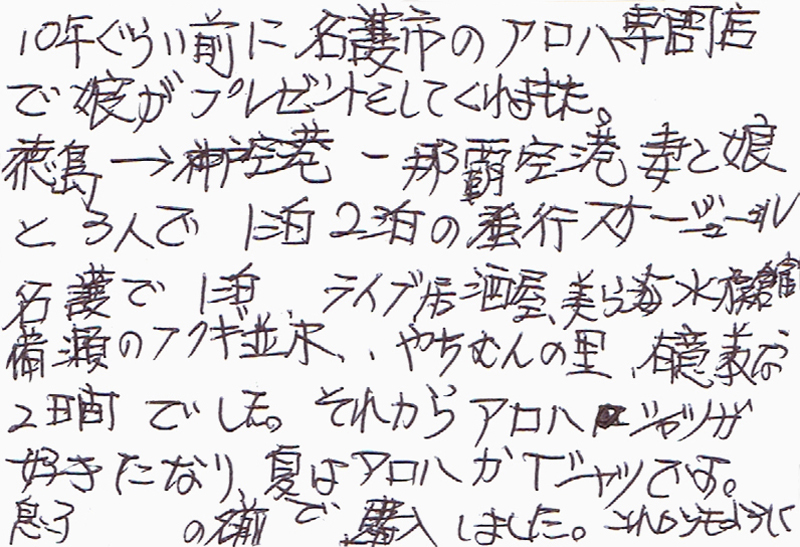 10年ぐらい前に名護市のアロハ専門店
で娘がプレゼントをしてくれました。
徳島→神戸空港ー那覇空港 妻と娘
と3人で 1泊2泊の強行スケージュール
名護で1泊、ライブ居酒屋、美ら海水族館
備瀬のフクギ並木、、やちむんの里、有意義な
2日間でした。それからアロハシャツが
好きになり、夏はアロハかTシャツです。
息子 の名前で購入しました。